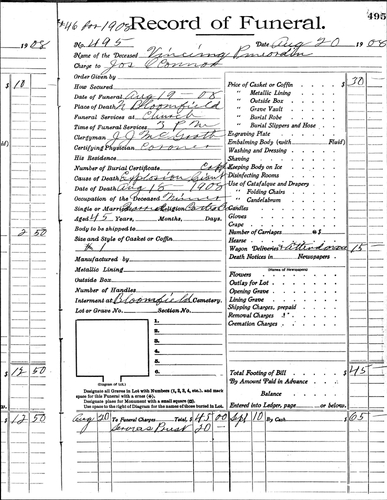 #46 for 1908 Record of Funeral. 495
No. 495 Date Aug 20 1908
1908
Name of the Deceased
Charge to Jos O'Connor
Order Given by
How Secured
Date of Funeral Aug 19 - 08
Place of Death N Bloomfield
Funeral Services at Church
Time of Funeral Services 3 P.M.
Clergyman J. J. McGrath
Certifying Physician Coroner
His Residence
Number of Burial Certificate
Cause of Death Explosion Giant
Date of Death Aug 18 1908
Occupation of the Deceased Miner
Single or Married Religion
Aged 45 Years, Months, Days.
Body to be shipped to
Size and Style of Casket or Coffin
# 1
Manufactured by
Metallic Lining
Outside Box
Number of Handles
Interment at Bloomfield Cemetery.
Lot or Grave No. Section No.
1.
2.
3.
4.
5.
6.
(Diagram of Lot.)
Designate all Graves in Lot with Numbers (1, 2, 3, 4, etc.), and mark
space for this Funeral with a cross (+).
Designate place for Monument with a small square (□).
Use space to right of Diagram for the names of those buried in Lot.
Price of Casket or Coffin $ 30
" Metallic Lining
" Outside Box
" Grave Vault
" Burial Robe
" Burial Slippers and Hose
Engraving Plate
Embalming Body (with Fluid)
Washing and Dressing
Shaving
Keeping Body on Ice
Disinfecting Rooms
Use of Catafalque and Drapery
" Folding Chairs
" Candelabrum
Candles
Gloves
Crape
Number of Carriages @ $
Hearse
Wagon Deliveries & Attendance 15 —
Death Notices in Newspapers
(Names of Newspapers)
Flowers
Outlay for Lot
Opening Grave
Lining Grave
Shipping Charges, prepaid
Removal Charges
Cremation Charges
Total Footing of Bill $ 45 —
By Amount Paid in Advance
Balance
Entered into Ledger, page or below.
10
2 50
12 50
12 50
Aug 20 To Funeral Charges Total, $ 45 00 Sept 10 By Cash $ 65 —
Priest 20 —